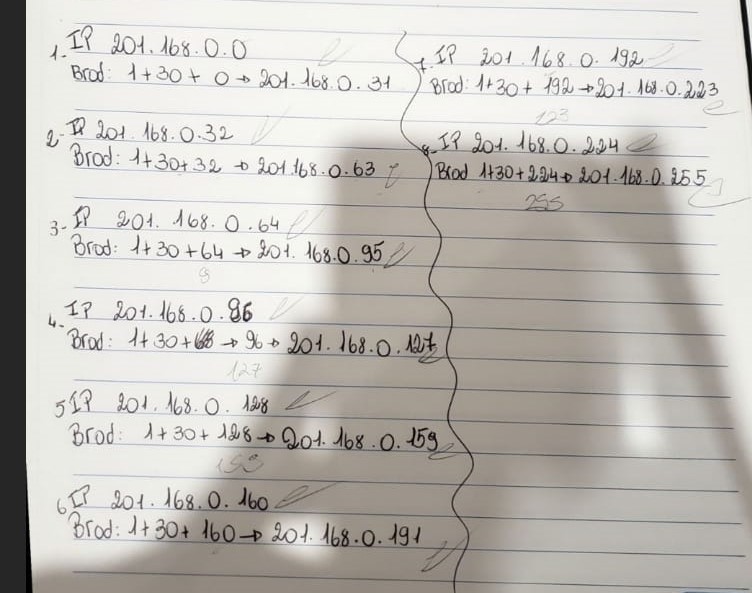 1. IP 201.168.0.0
Brod: 1+30+0 → 201.168.0.31
2- IP 201.168.0.32
Brod: 1+30+32 → 201.168.0.63
3- IP 201.168.0.64
Brod: 1+30+64 → 201.168.0.95
9
4- IP 201.168.0.96
Brod: 1+30+ → 96 → 201.168.0.127
127
5 IP 201.168.0.128
Brod: 1+30+128 → 201.168.0.159
159
6 IP 201.168.0.160
Brod: 1+30+160 → 201.168.0.191
7- IP 201.168.0.192
Brod: 1+30+192 → 201.168.0.223
123
8- IP 201.168.0.224
Brod 1+30+224 → 201.168.0.255
255